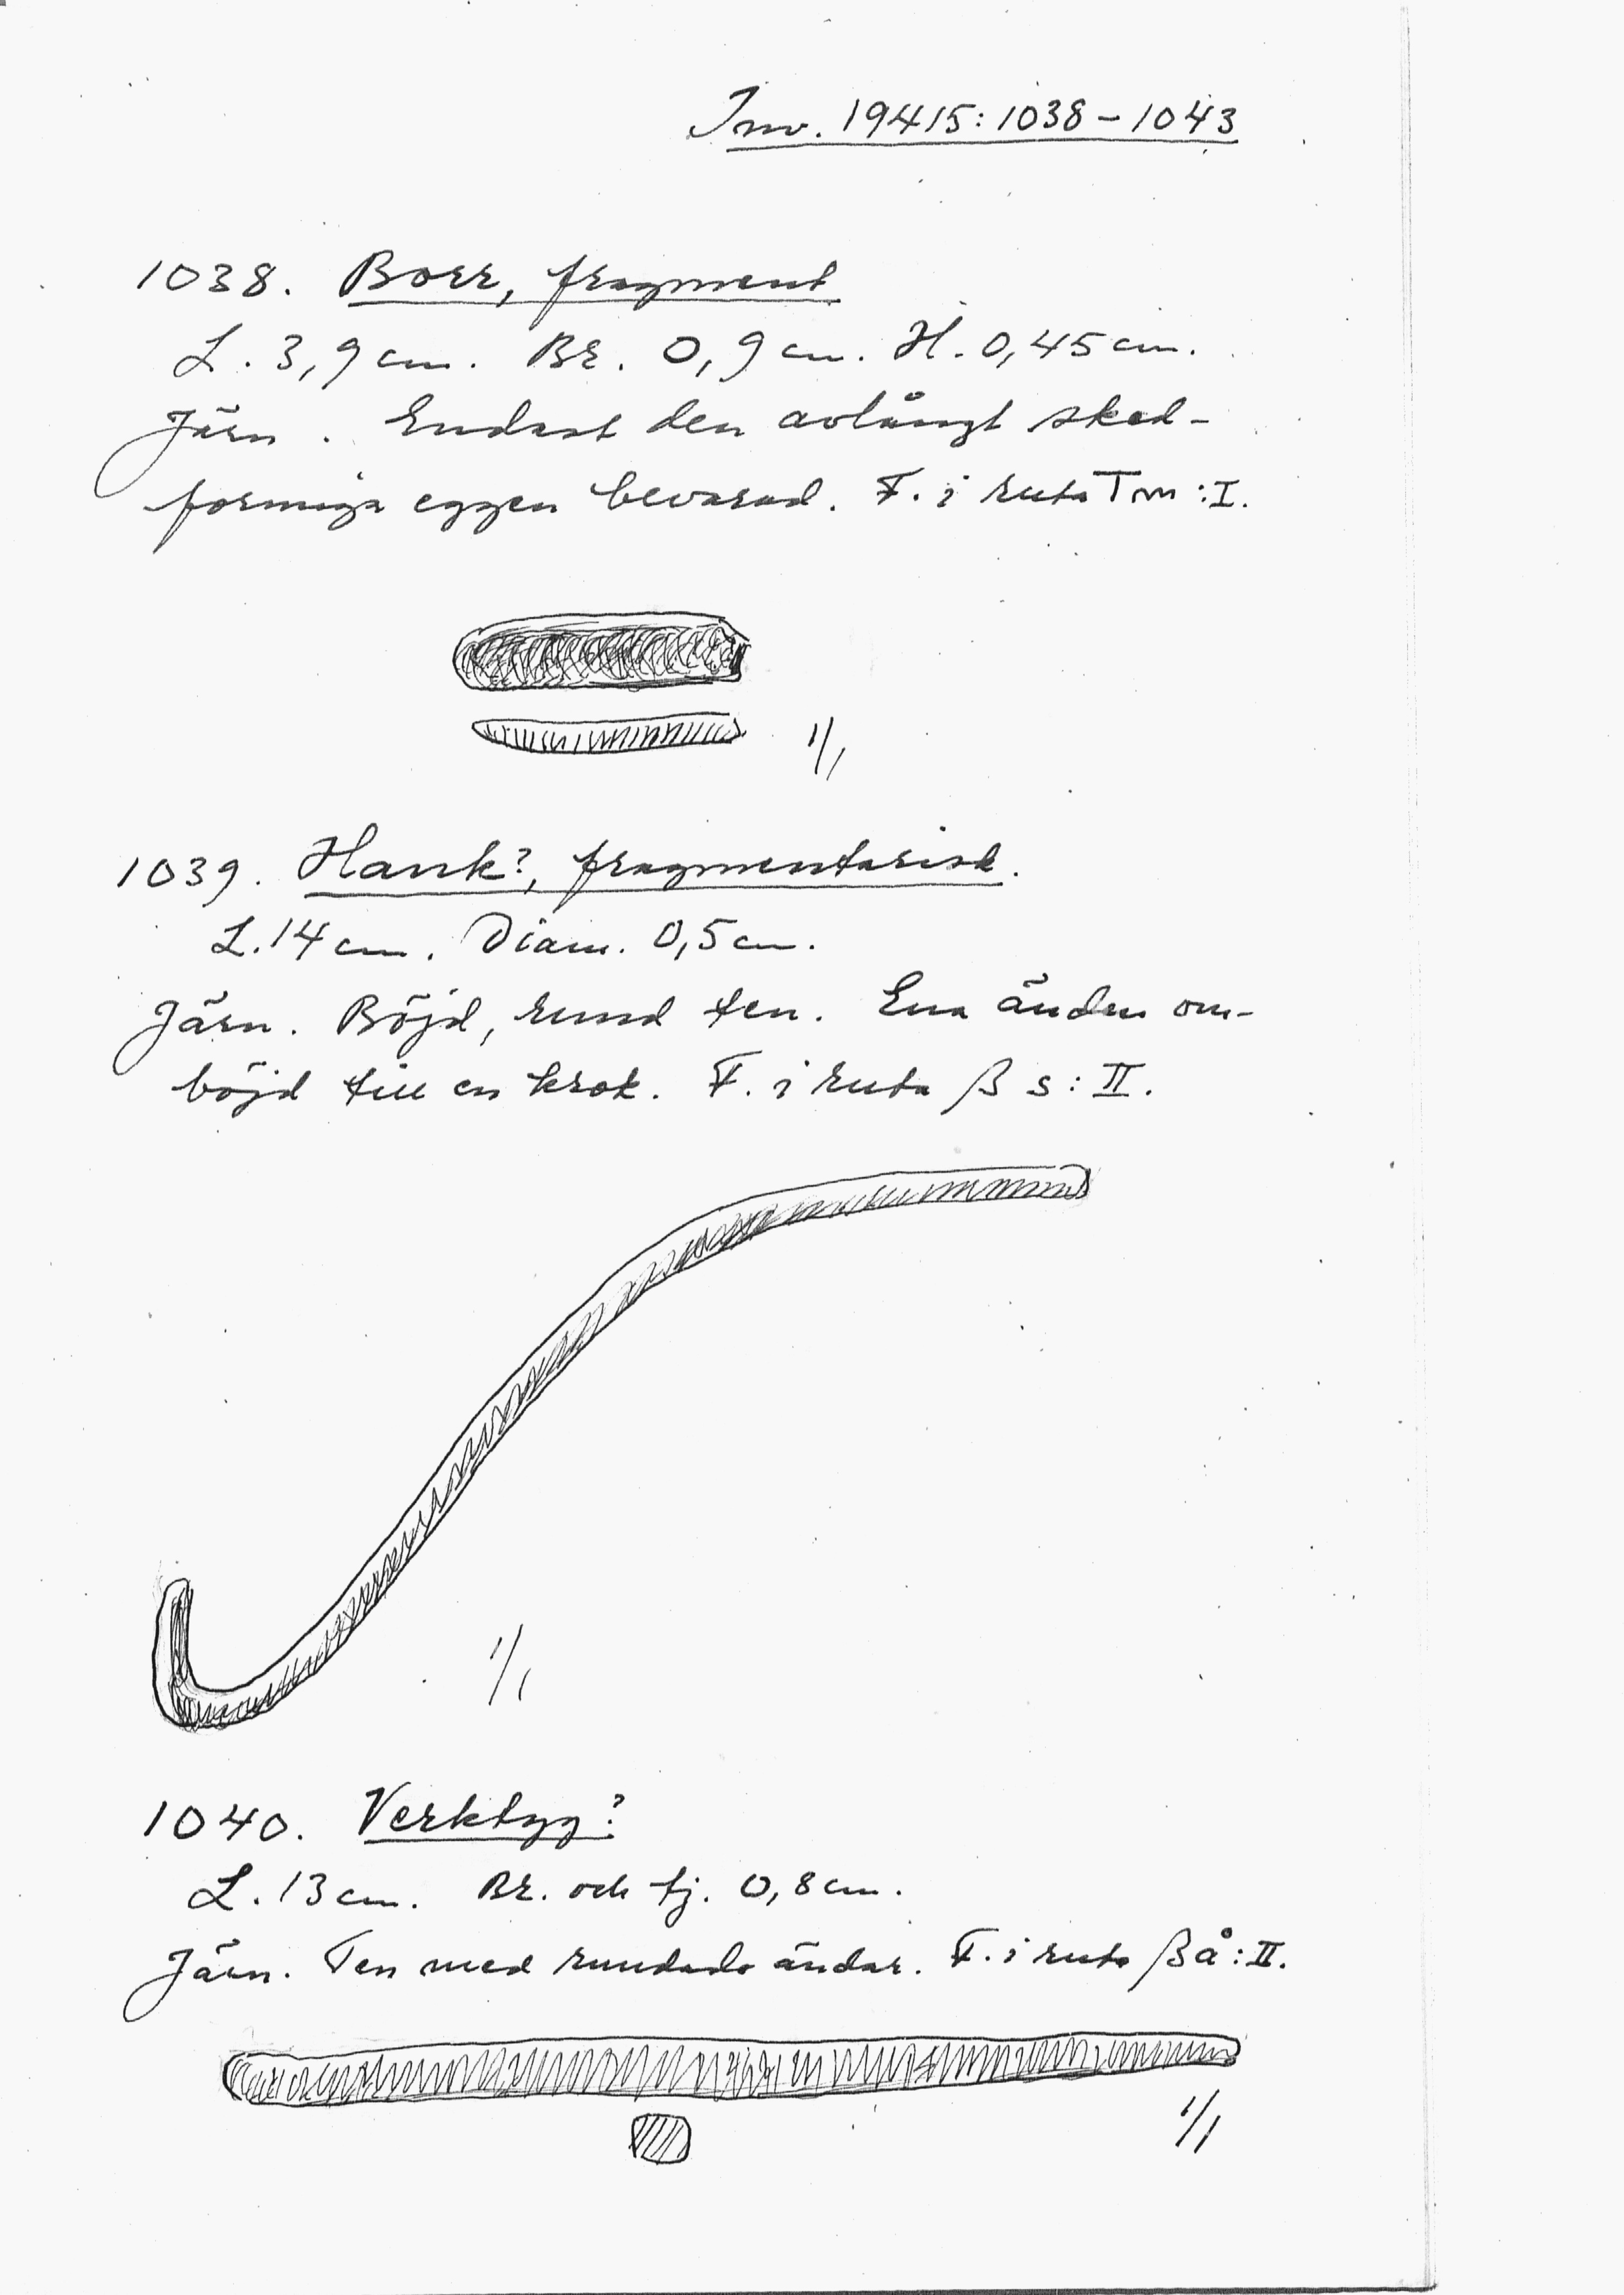 Inv. 19415:1038-1043
1038. Borr, fragment
L. 3,9 cm. Br. 0,9 cm. H. 0,45 cm.
Järn. Endast den avlångt sked-
formiga eggen bevarad. F. i ruta Tm:I.
1/1
1039. Hank?, fragmentarisk.
L. 14 cm. Diam. 0,5 cm.
Järn. Böjd, rund ten. Ena änden om-
böjd till en krok. F. i ruta ß s:II.
1/1
1040. Verktyg?
L. 13 cm. Br. och tj. 0,8 cm.
Järn. Ten med rundade ändar. F. i ruta ßå:II.
1/1